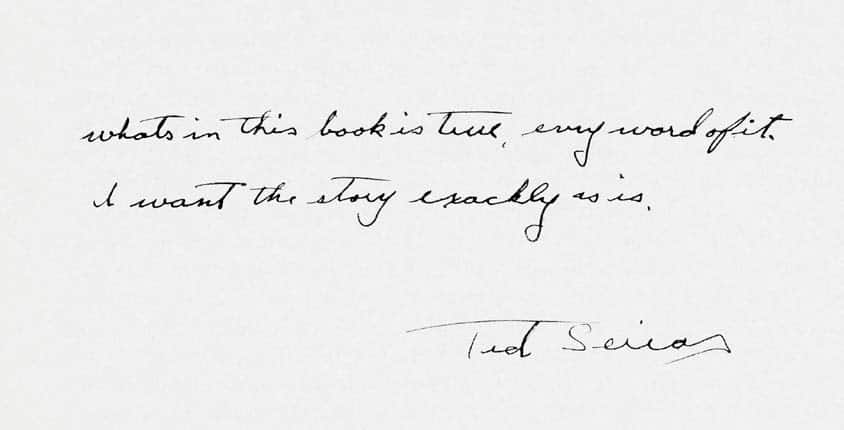 whats in this book is true, evry word of it.
I want the story exackly as is.
Ted Serios